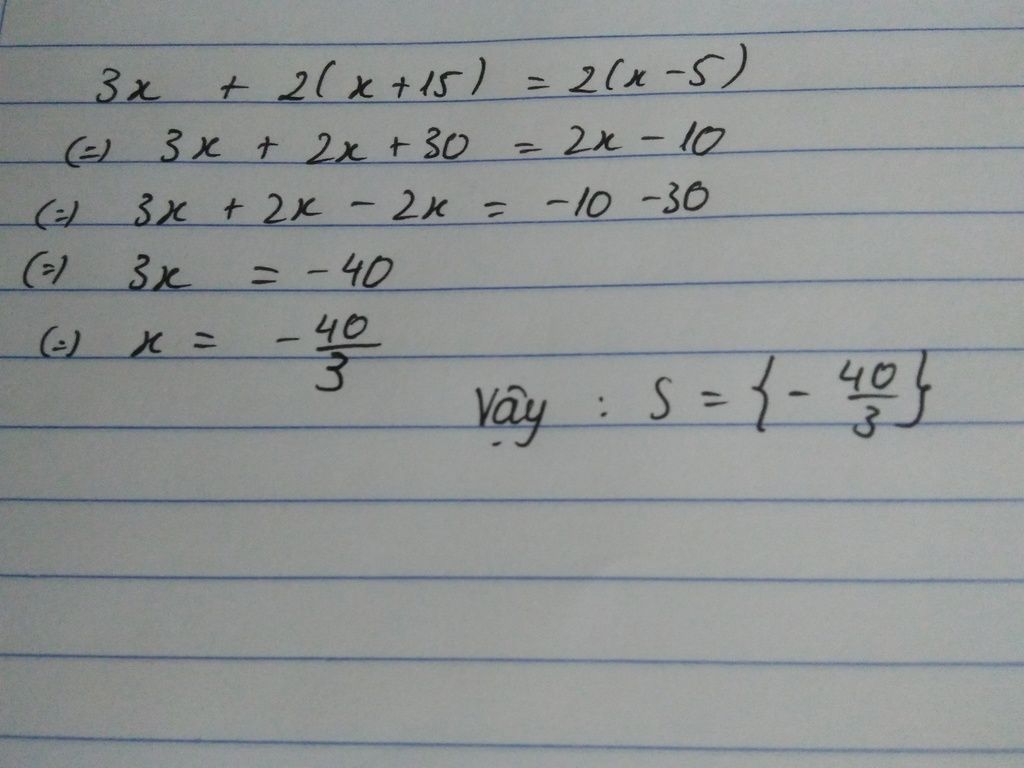 3x + 2(x+15) = 2(x-5)
(=) 3x + 2x + 30 = 2x - 10
(=) 3x + 2x - 2x = -10 -30
(=) 3x = -40
(=) x = -40/3
Vậy : S = {- 40/3}